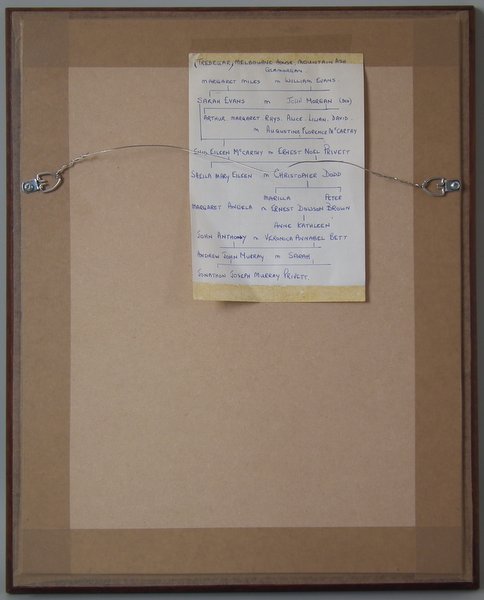 (TREDEGAR) MELBOURNE HOUSE MOUNTAIN ASH
GLAMORGAN
MARGARET MILES m WILLIAM EVANS
SARAH EVANS m JOHN MORGAN
ARTHUR MARGARET RHYS. ALICE. LILIAN. DAVID.
m AUGUSTINE FLORENCE McCARTHY
ENID EILEEN McCARTHY m ERNEST NOEL PRIVETT
SHEILA MARY EILEEN m CHRISTOPHER DODD
MARILLA PETER
MARGARET ANGELA m ERNEST DOWSON BROWN
ANNE KATHLEEN
JOHN ANTHONY m VERONICA ANNABEL BETT
ANDREW JOHN MURRAY m SARAH
JONATHON JOSEPH MURRAY PRIVETT.